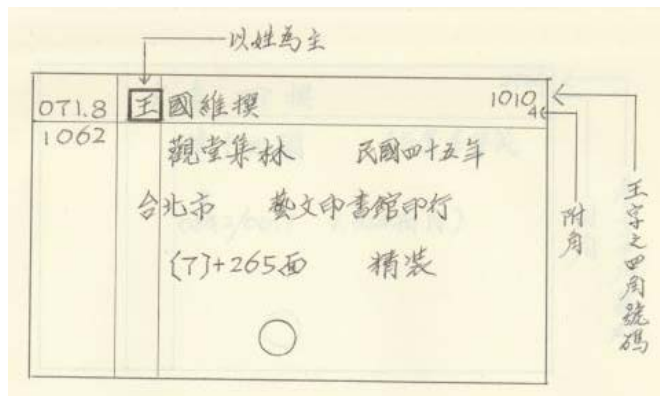 以姓為主
071.8 王國維撰 1010₄
1062
觀堂集林 民國四十五年
台北市 藝文印書館印行
{7}+265面 精裝
附角
王字之四角號碼